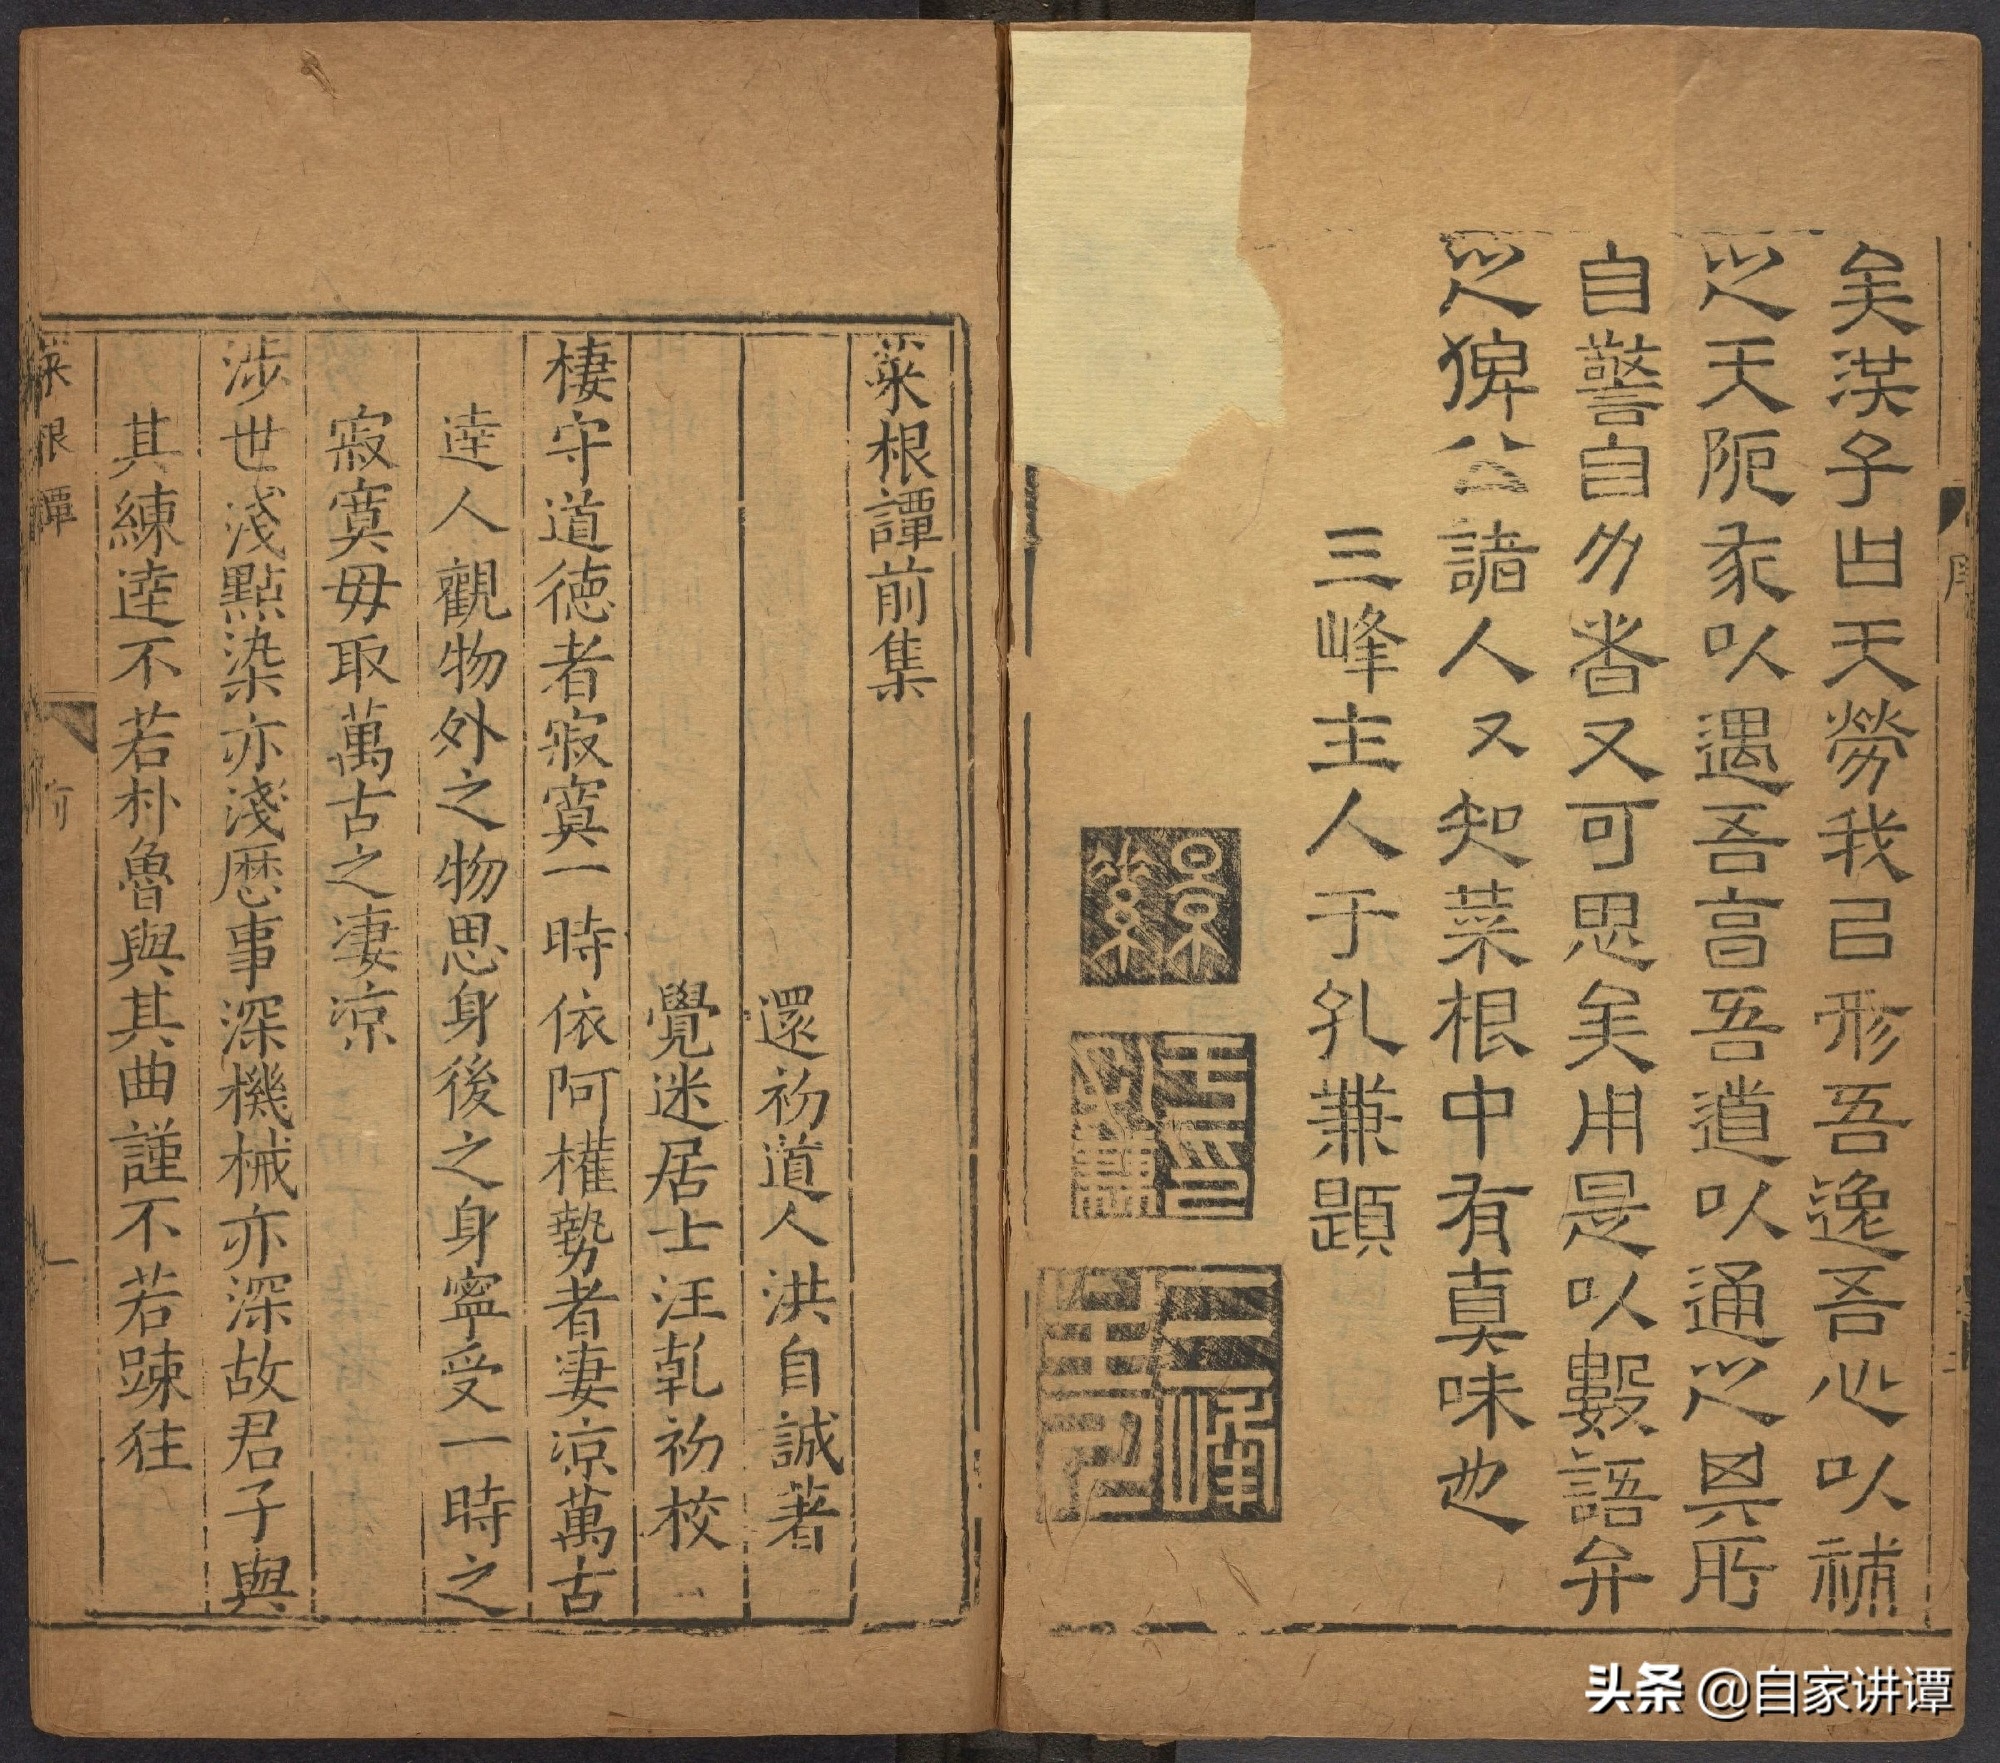 矣洪子曰天勞我以形吾逸吾心以補
之天阨我以遇吾高吾道以通之其所
自警自力者又可思矣用是以數語弁
之俾公諸人人又知菜根中有真味也
三峰主人于孔兼題
序
二
菜根譚前集
還初道人洪自誠著
覺迷居士汪乾初校
棲守道德者寂寞一時依阿權勢者凄涼萬古
達人觀物外之物思身後之身寧受一時之
寂寞毋取萬古之凄涼
涉世淺點染亦淺歷事深機械亦深故君子與
其練達不若朴魯與其曲謹不若踈狂
菜根譚
前
一
头条 @自家讲谭